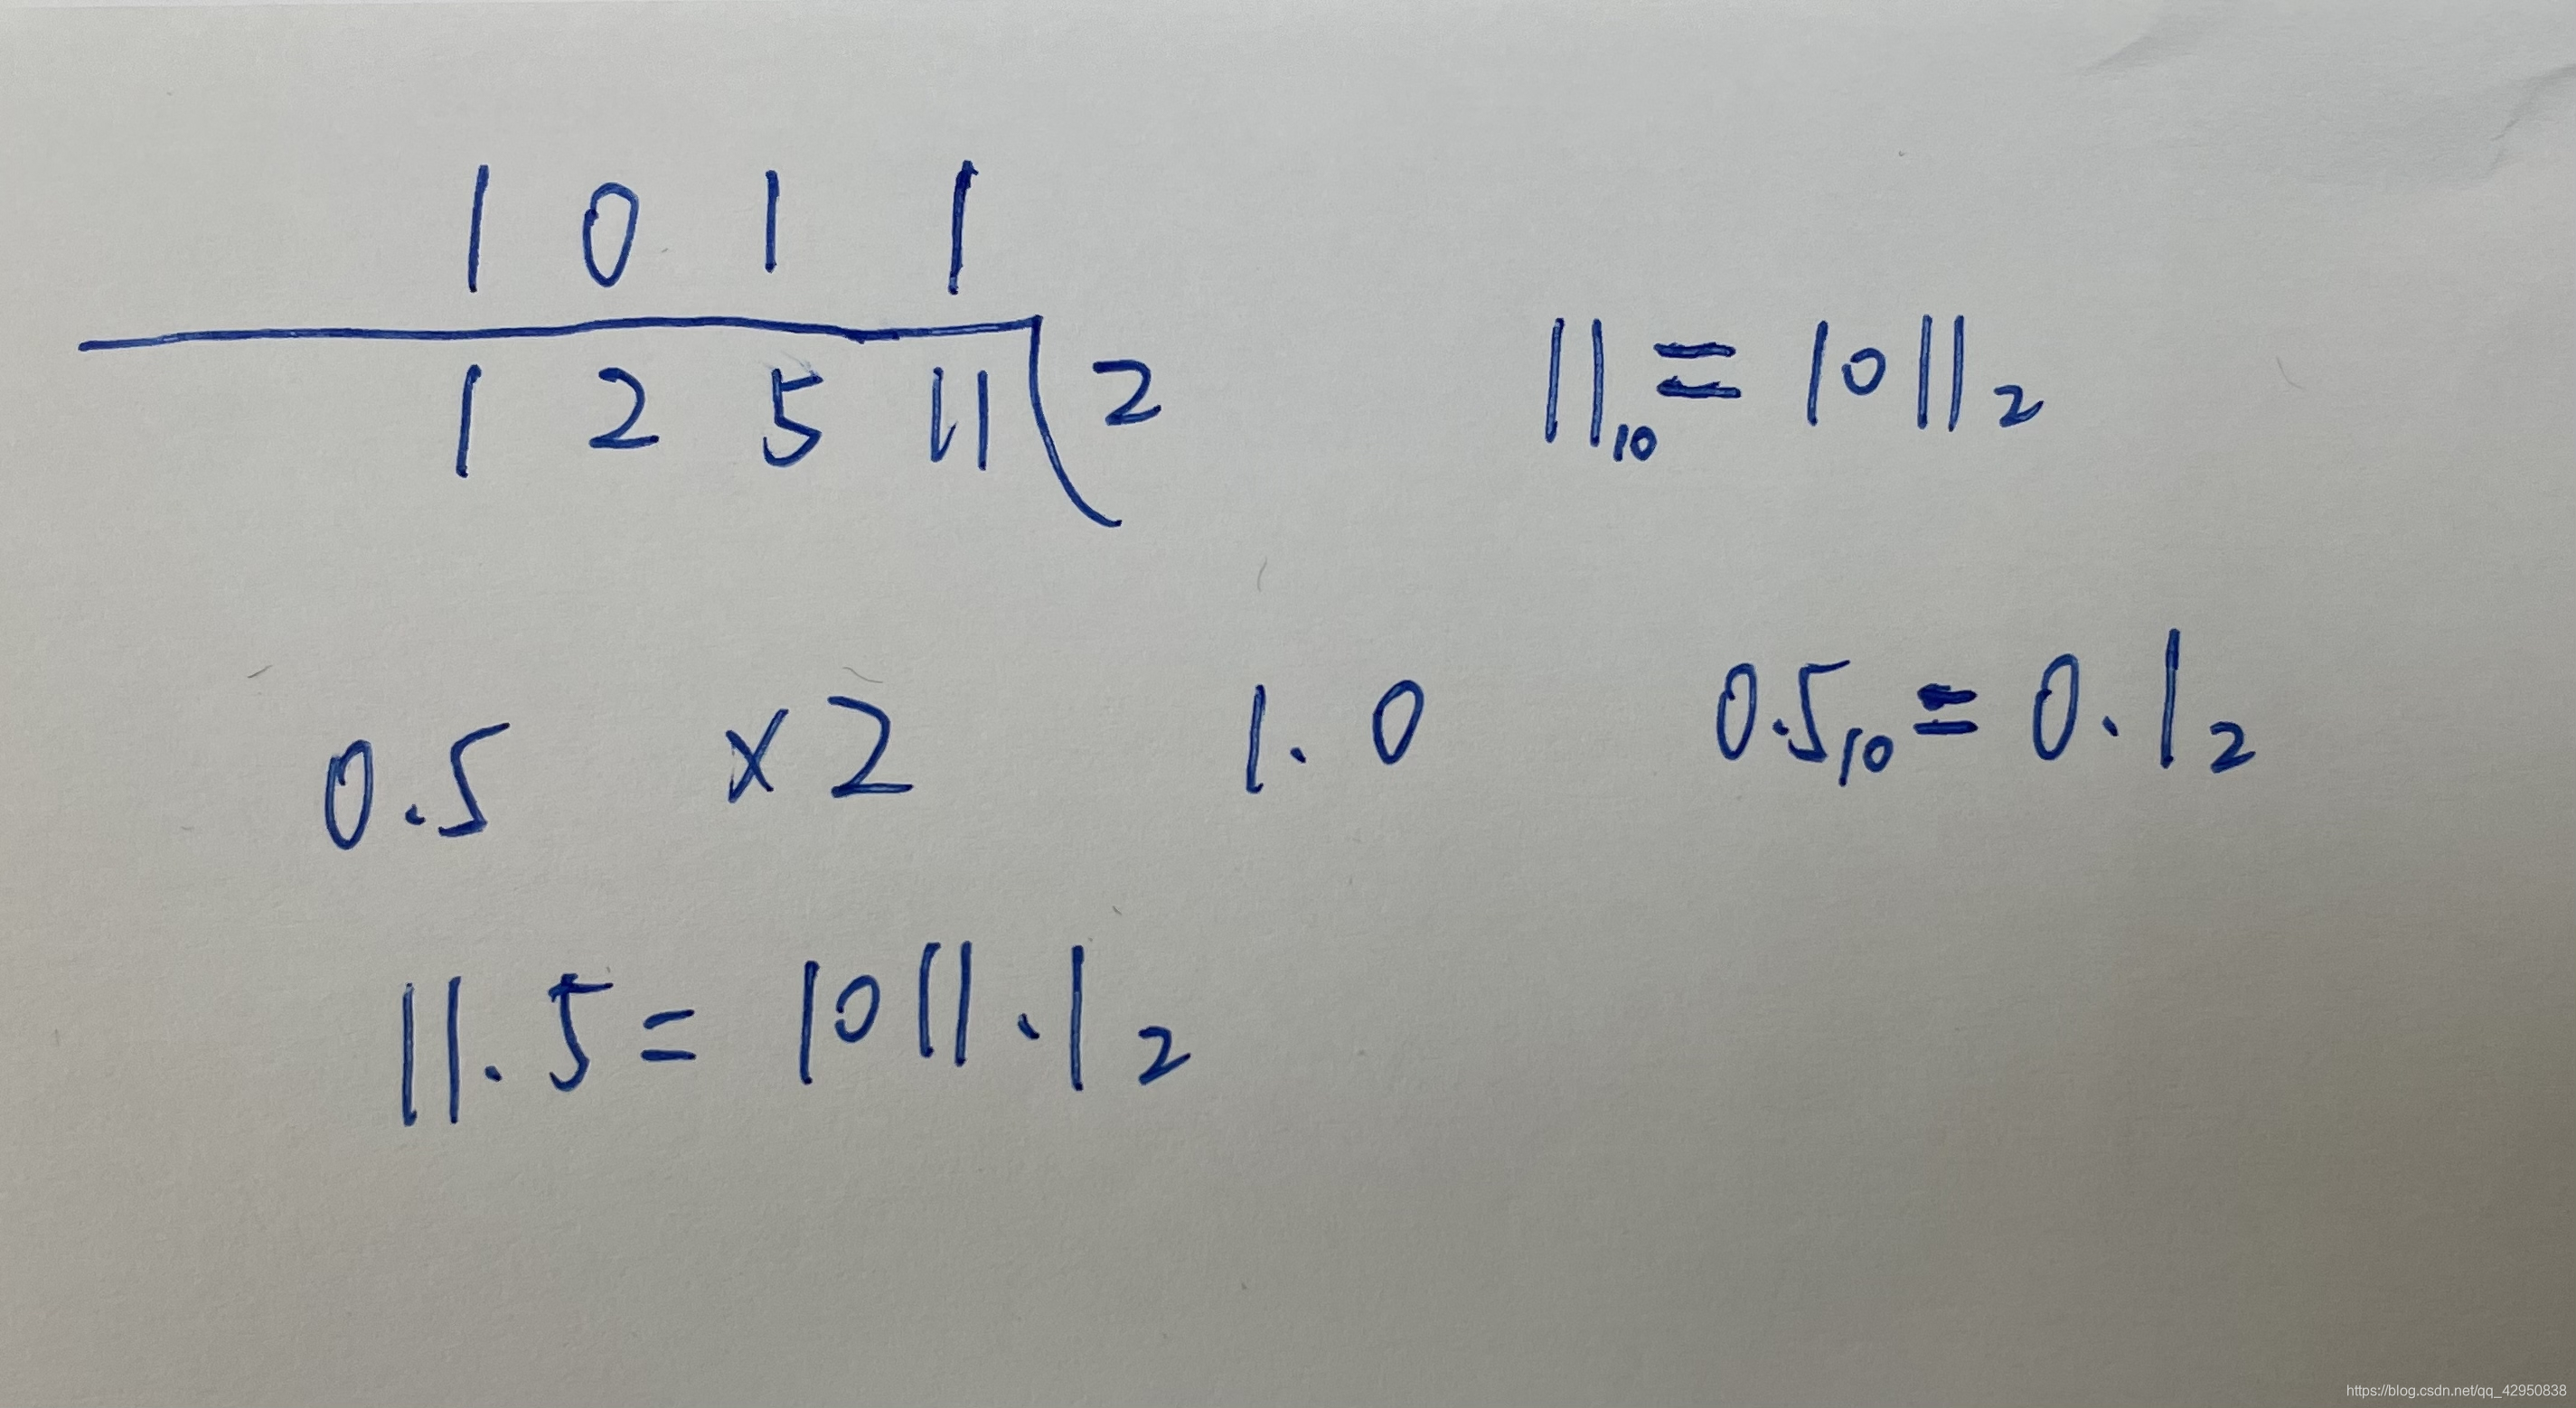 1 0 1 1
1 2 5 11 2
11₁₀ = 1011₂
0.5 ×2 1.0 0.5₁₀ = 0.1₂
11.5 = 1011.1₂
https://blog.csdn.net/qq_42950838